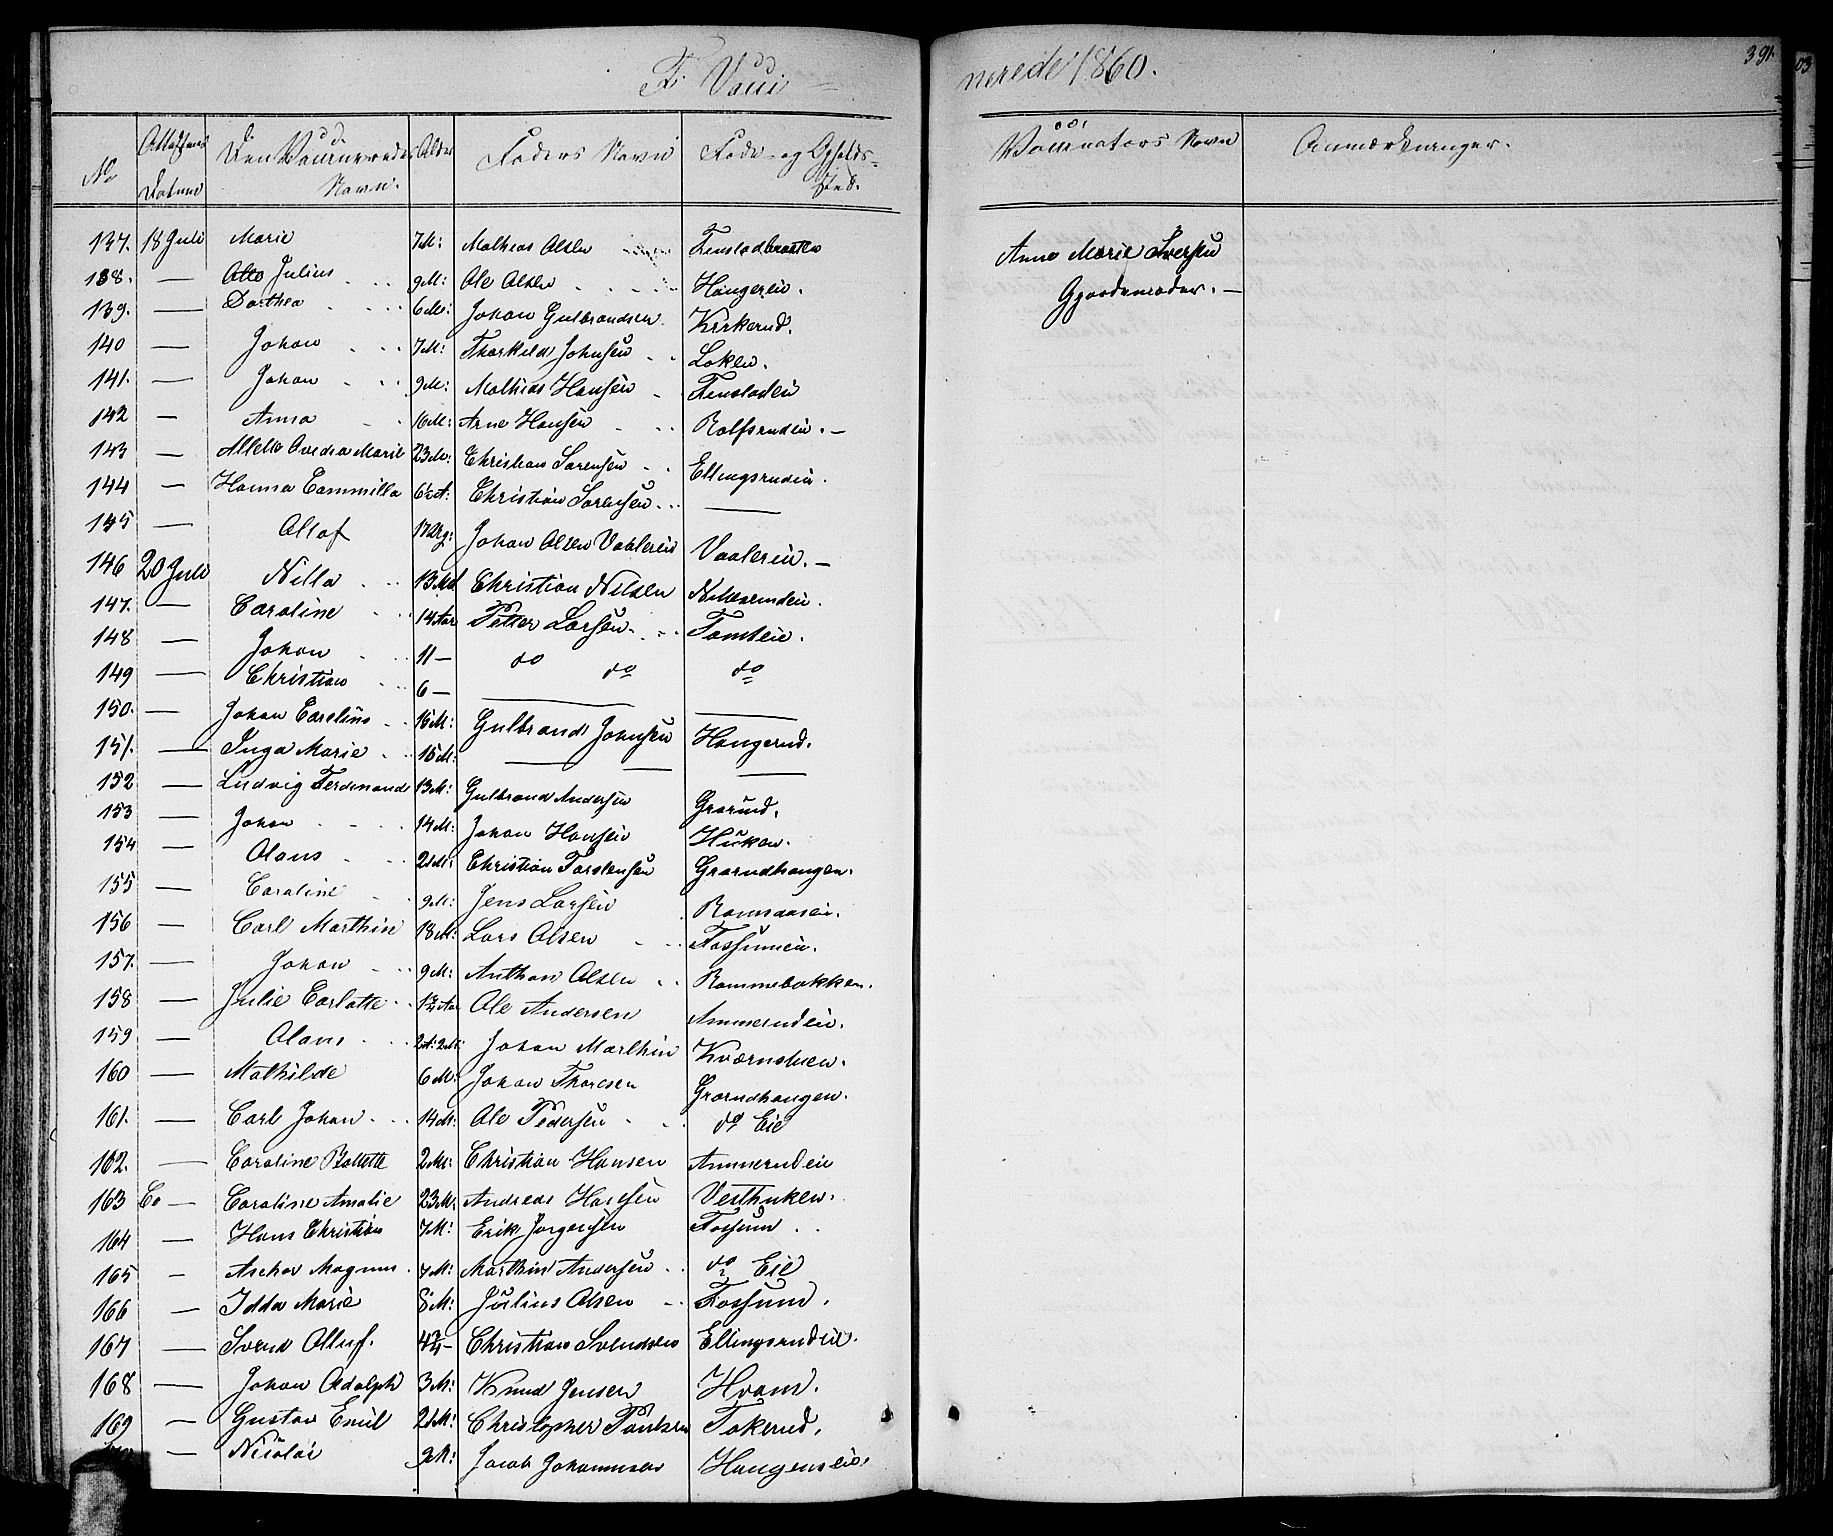 F. Vacci-
nerede 1860.
391
No
Attestens Datum
Den Vaccineredes Navn.
Alder
Faders Navn
Føde- og Opholds-
sted.
Vaccinators Navn
Anmærkninger.
137. 18 Juli Marie 7 M: Mathias Olsen Fensladbraaten Anne Marie Iversen
138. — Julius 9 M: Ole Olsen Haugerei. Gjordemoder. —
139. — Dorthea 6 M: Johan Gulbrandsen Kirkerud.
140 — Johan 7 M: Thorkild Johnsen Løken.
141. — Johan 9 M: Mathias Hansen Fensladei
142 — Anna 16 M: Arne Hansen Rolfsrudei. —
143 — Marie 23 M: Christian Sørensen Ellingsrudei.
144 — Hanna Cammilla 6½ A: Christian Sørensen —
145 — Ollaf 17 Johan Olsen Vaalerei Vaalerei. —
146 20 Juli Nilla 13 Md Christian Nilsen
147. — Caroline 14 Aar Petter Larsen Tomtei.
148 — Johan 11 — do do do
149 — Christian 6 — — —
150. — Johan Carelius 16 M: Gulbrand Johnsen Haugerud.
151. — Inga Marie 16 M: — — —
152 — Ludvig Ferdinand 13 M: Gulbrand Andersen Grorud.
153 — Johan 14 M: Johan Hansen Huken.
154 — Olaus 21 M: Christian Torstensen Grorudhaugen.
155 — Caroline 9 M: Jens Larsen Romsaasei.
156 — Carl Marthin 18 M: Lars Olsen Fossumei.
157. — Johan 9 M: Anthon Olsen Rommebakken.
158 — Julie Carlotte 1½ Aar Ole Andersen Ammerudei.
159 — Olaus 2 A: 2 M: Johan Marthin Kværnstuen.
160 — Mathilde 6 M: Johan Thoresen Grorudhaugen.
161. — Carl Johan 14 M: Ole Pedersen do Eie
162. — Caroline Bollette 2 M: Christian Hansen Ammerudei
163 Co — Caroline Amalie 23 M: Andreas Hansen Vesthuken.
164 — Hans Christian 7 M: Erik Jørgensen Fossum
165 — Aschor Magnus 7 M: Marthin Andersen do Eie
166 — Idda Marie 8 M: Julius Olsen Fossum.
167 — Svend Olluf. Christian Svendsen Ellingsrudei.
168 — Johan Adolph 3 M: Knud Jensen Hvam.
169 — Gustav Emil 21 M: Christopher Paulsen Tokerud.
— Nicolai 9 M: Jacob Johannesen Haugensei.